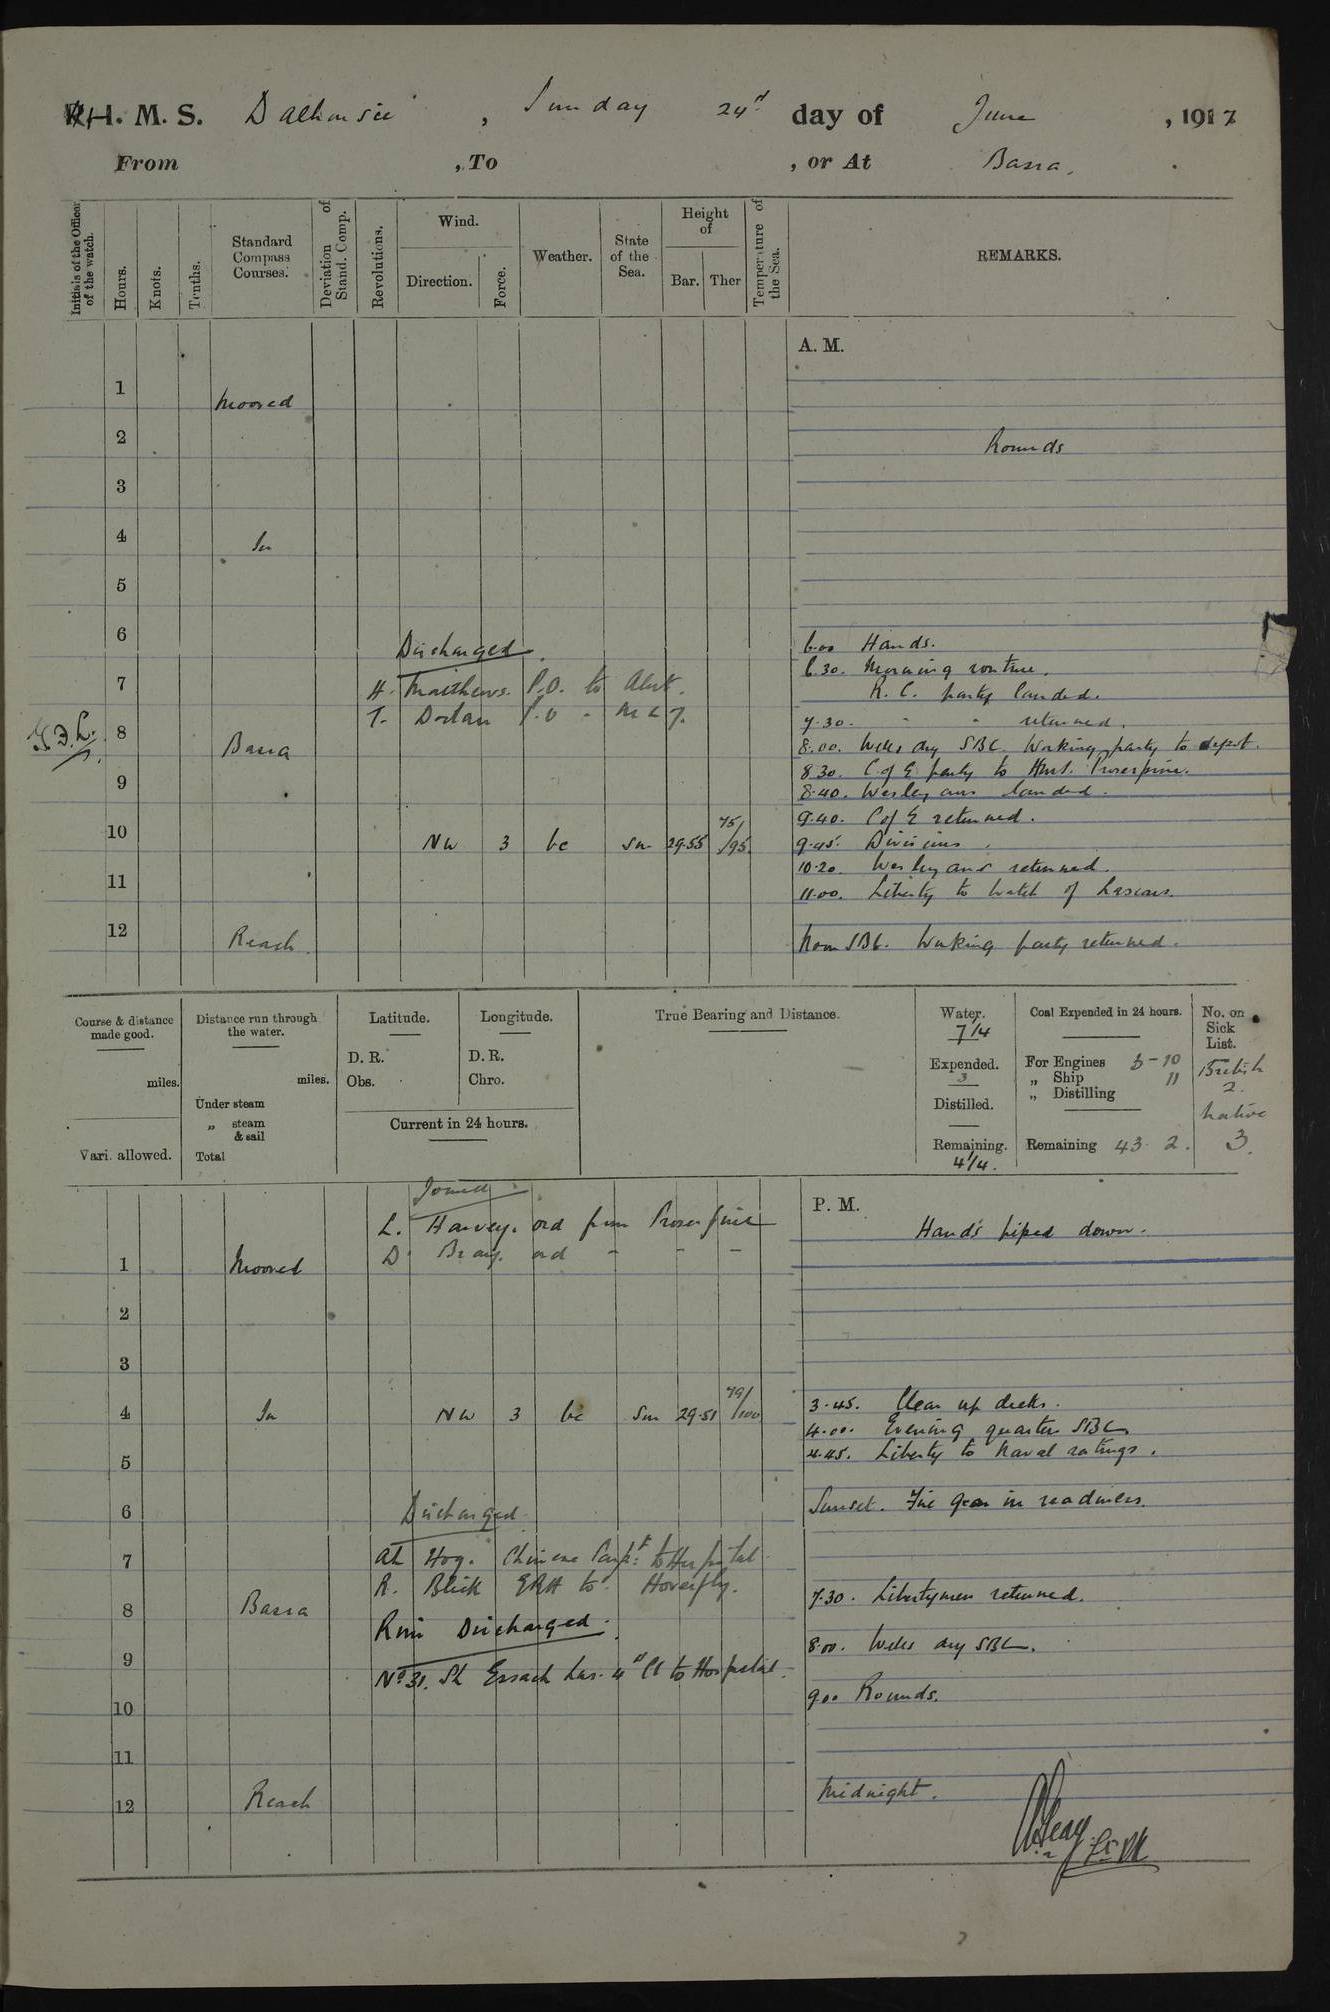 H. M. S. Dalhousie, Sunday 24th day of June, 1917
From , To , or At Basra.
Initials of the Officer of the watch.
Hours.
Knots.
Tenths.
Standard Compass Courses.
Deviation of Stand. Comp.
Revolutions.
Wind.
Direction.
Force.
Weather.
State of the Sea.
Height of
Bar.
Ther
Temperature of the Sea.
REMARKS.
A. M.
1
Moored
2
Rounds
3
4
In
5
6
Discharged
6.00 Hands.
6.30. Morning routine.
7
H. Matthews. P.O. to Alert.
R. C. party landed.
T. Dolan P.O
7.30. " " returned.
8
Basra
8.00. Wells dry SBC. Working party to depot.
8.30. C of E party to H.M.S. Proserpine.
9
8.40. Wesleyans landed.
9.40. C of E returned.
10
NW 3 bc Sm 29.55 75/95
9.45. Divisions.
10.20. Wesleyans returned.
11
11.00. Liberty to watch of Lascars.
12
Reach
Noon SBC. Working party returned.
Course & distance made good.
miles.
Vari. allowed.
Distance run through the water.
miles.
Under steam
„ steam & sail
Total
Latitude.
D. R.
Obs.
Longitude.
D. R.
Chro.
Current in 24 hours.
True Bearing and Distance.
Water.
7 1/4
Expended.
3
Distilled.
Remaining.
4 1/4.
Coal Expended in 24 hours.
For Engines 5-10
„ Ship 11
„ Distilling
Remaining 43. 2.
No. on Sick List.
British
2.
Native
3.
P. M.
Joined
L. Harvey. ord from Proserpine
Hands piped down.
D. Bray. ord " " "
1
Moored
2
3
3.45. Clear up decks.
4
In
NW 3 bc Sm 29.51 79/100
4.00. Evening quarters SBC
4.45. Liberty to Naval ratings.
5
6
Discharged
Sunset. Fire gear in readiness.
7
Ah Hog. Chinese Carpr to Hospital
R. Blick ERA to Hoverfly.
7.30. Libertymen returned.
8
Basra
Rim Discharged.
8.00. Wells dry SBC.
9
No 31. Sk Essack Las. 4th Cl to Hospital.
9.00 Rounds.
10
11
12
Reach
Midnight.